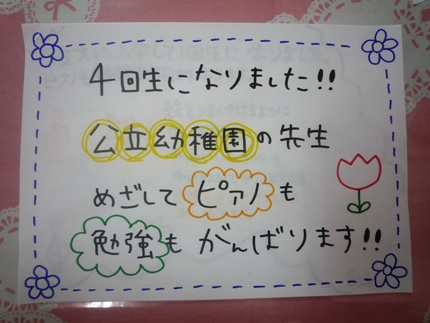 4回生になりました!!
公立幼稚園の先生
めざして ピアノも
勉強も がんばります!!